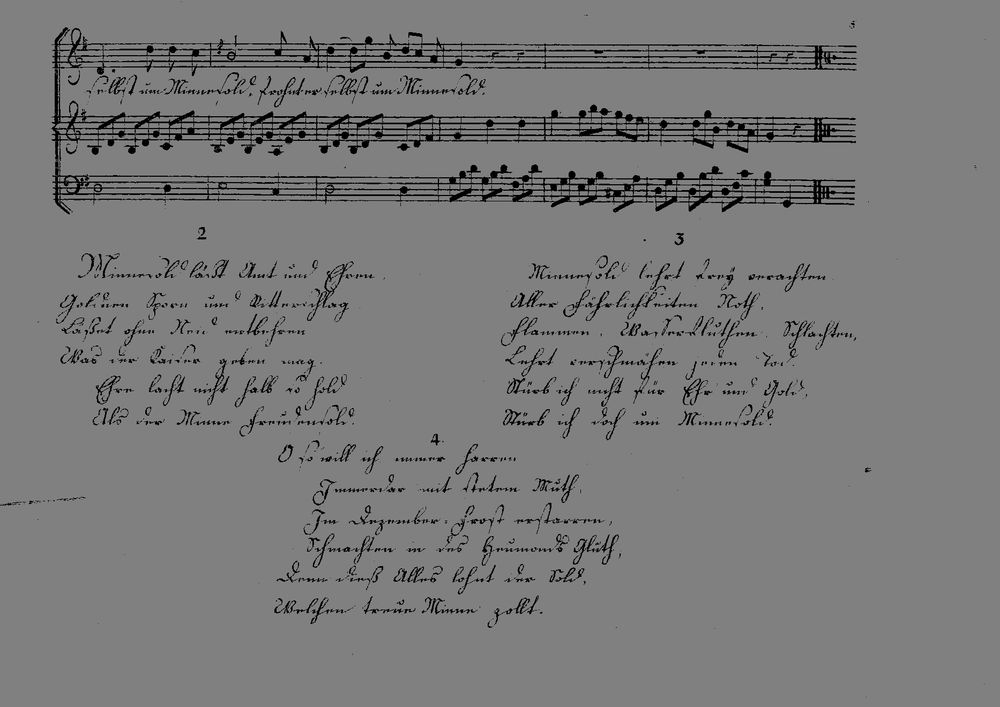 5
selbst um Minnesold, frohnt er selbst um Minnesold.
2
Minnesold läßt Amt und Ehren,
Goldnen Sporn und Ritterschlag
Läßet ohne Neid entbehren
Was der Kaiser geben mag.
Ehre lacht nicht halb so hold
Als der Minne Freudensold.
3
Minnesold lehrt frey verachten
Aller Fährlichkeiten Noth,
Flammen, Wasserfluthen, Schlachten,
Lehrt verschmähen jeden Tod.
Stürb ich nicht für Ehr und Gold,
Stürb ich doch um Minnesold.
4.
O so will ich immer harren
Immerdar mit stetem Muth,
Im Dezember-Frost erstarren,
Schmachten in des Heumonds Gluth,
Denn dieß Alles lohnt der Sold,
Welchen treue Minne zollt.